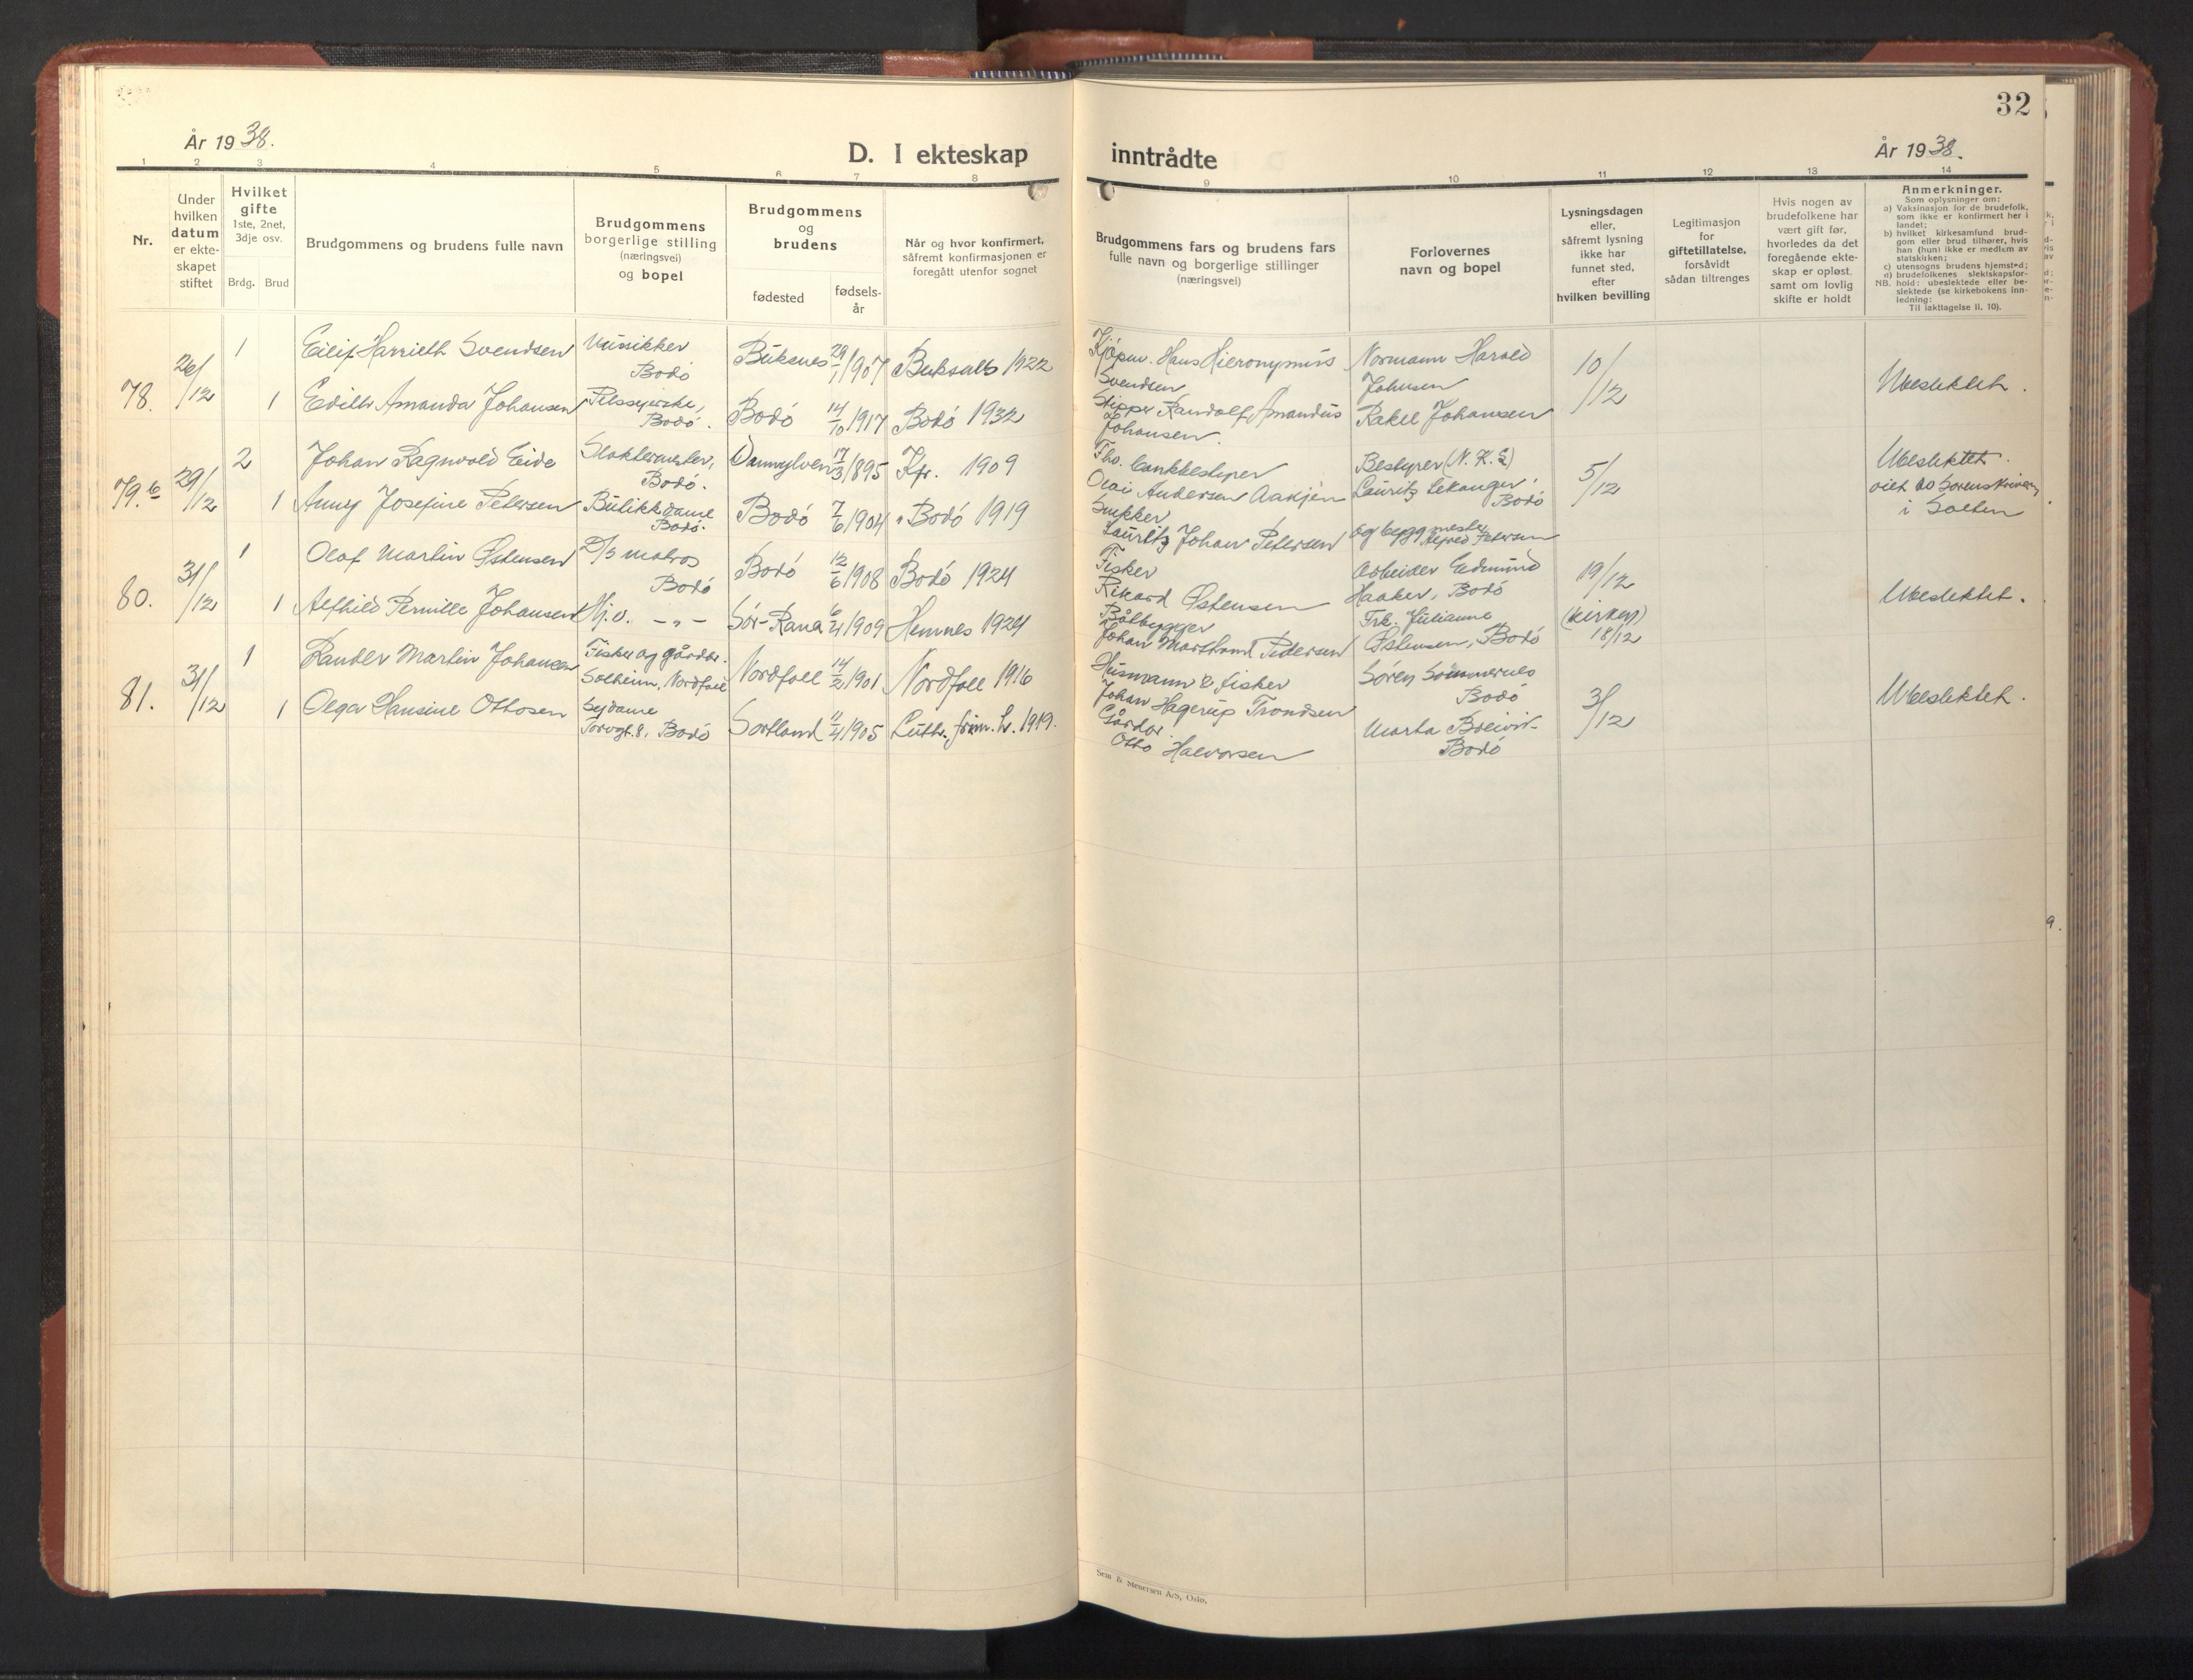 År 1938.
D. I ekteskap
inntrådte
År 1938.
32
1 2 3 4 5 6 7 8 9 10 11 12 13 14
Nr.
Under
hvilken
datum
er ekte-
skapet
stiftet
Hvilket
gifte
1ste, 2net,
3dje osv.
Brdg. Brud
Brudgommens og brudens fulle navn
Brudgommens
borgerlige stilling
(næringsvei)
og bopel
Brudgommens
og
brudens
fødested
fødsels-
år
Når og hvor konfirmert,
såfremt konfirmasjonen er
foregått utenfor sognet
Brudgommens fars og brudens fars
fulle navn og borgerlige stillinger
(næringsvei)
Forlovernes
navn og bopel
Lysningsdagen
eller,
såfremt lysning
ikke har
funnet sted,
efter
hvilken bevilling
Legitimasjon
for
giftetillatelse,
forsåvidt
sådan tiltrenges
Hvis nogen av
brudefolkene har
vært gift før,
hvorledes da det
foregående ekte-
skap er opløst,
samt om lovlig
skifte er holdt
Anmerkninger.
Som oplysninger om:
a) Vaksinasjon for de brudefolk,
som ikke er konfirmert her i
landet;
b) hvilket kirkesamfund brud-
gom eller brud tilhører, hvis
han (hun) ikke er medlem av
statskirken;
c) utensogns brudens hjemsted;
d) brudefolkenes slektskapsfor-
NB. hold: ubeslektede eller be-
slektede (se kirkebokens inn-
ledning:
Til iakttagelse II. 10).
78. 26/12
1 Eilif Harrieth Svendsen
Musikker
Bodó
Buksnes 29/1 1907
Buksnes 1922
Kjöpm. Hans Hieronymus
Svendsen
Normann Harald
Johnsen
10/12
Ubeslektet.
1 Edith Amanda Johansen
Bodó.
Bodó 14/10 1917
Bodó 1932
Skipper Randolf Amandus
Johansen.
Rakel Johansen
79.b 29/12
2 Johan Ragnvald Eide
Slaktermester,
Bodó.
17/3 1895
Kfr. 1909
Fhv. bankbestyrer
Olai Andersen
Bestyrer (N. K. L)
Lauritz Lekanger,
Bodó
5/12
Ubeslektet.
viet av Sorenskriveren
i Salten
1 Anny Josefine Petersen
Butikkdame
Bodó.
Bodó 7/6 1904
Bodó 1919
Snikker
Lauritz Johan Petersen
og byggmester
Alfred Petersen
80. 31/12
1 Olaf Martin Østensen
D/S matros
Bodó
Bodó 12/6 1908
Bodó 1924
Fisker
Rikard Østensen
Arbeider Edmund
Haaker, Bodó
19/12
(kirken)
18/12
Ubeslektet.
1 Alfhild Pernille Johansen
Hj.v. -"-
Sør-Rana 6/4 1909
Hemnes 1924
Båtbygger
Johan Pedersen
Frk. Julianne
Østensen, Bodó
81. 31/12
1 Sander Martin Johansen
Fisker og gårdbr.
Solheim, Nordfoll
Nordfoll 14/2 1901
Nordfoll 1916
Husmann & fisker
Johan Hagerup Trondsen
Søren Sommernes
Bodó
3/12
Ubeslektet.
1 Olga Hansine Ottosen
Sydame
Torvgt. 8, Bodó
Sortland 11/4 1905
Luth. frim. h. 1919.
Gårdbr.
Otto Halvorsen
Marta Breivik
Bodó
Sem & Stenersen A/S, Oslo.